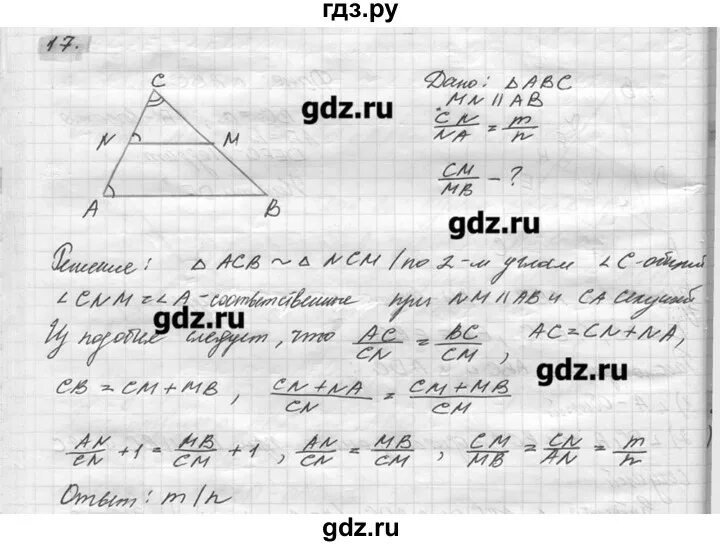 гдз.ру
17.
C
N
M
A
B
Дано: △ABC
MN ∥ AB
CN/NA = m/n
CM/MB - ?
gdz.ru
gdz.ru
Решение: △ ACB ~ △ NCM /по 2-м углам ∠C-общий
∠CNM = ∠A - соответственные при NM ∥ AB и CA секущей
gdz.ru
Из подобия следует, что AC/CN = BC/CM, AC = CN + NA,
gdz.ru
CB = CM + MB, CN + NA/CN = CM + MB/CM
AN/CN + 1 = MB/CM + 1, AN/CN = MB/CM, CM/MB = CN/AN = m/n
Ответ: m/n
gdz.ru